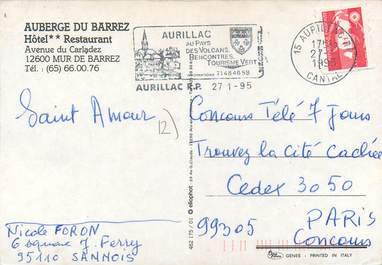 AUBERGE DU BARREZ
Hôtel** Restaurant
Avenue du Carladez
12600 MUR DE BARREZ
Tél. (65) 66.00.76
AURILLAC
AU PAYS
DES VOLCANS
RENCONTRES,
TOURISME VERT
71484659
AURILLAC R.P. 27-1-95
15 AURILLAC R.P.
27-1
1995
CANTAL
Saint Amour
12)
Concours Télé 7 Jours
Trouvez la Cité Cachée
Cedex 3050
99305 PARIS
Concours
Nicole FORON
6 square J. Ferry
95110 SANNOIS
462 175 / 01 © eliophot
GENES - PRINTED IN ITALY